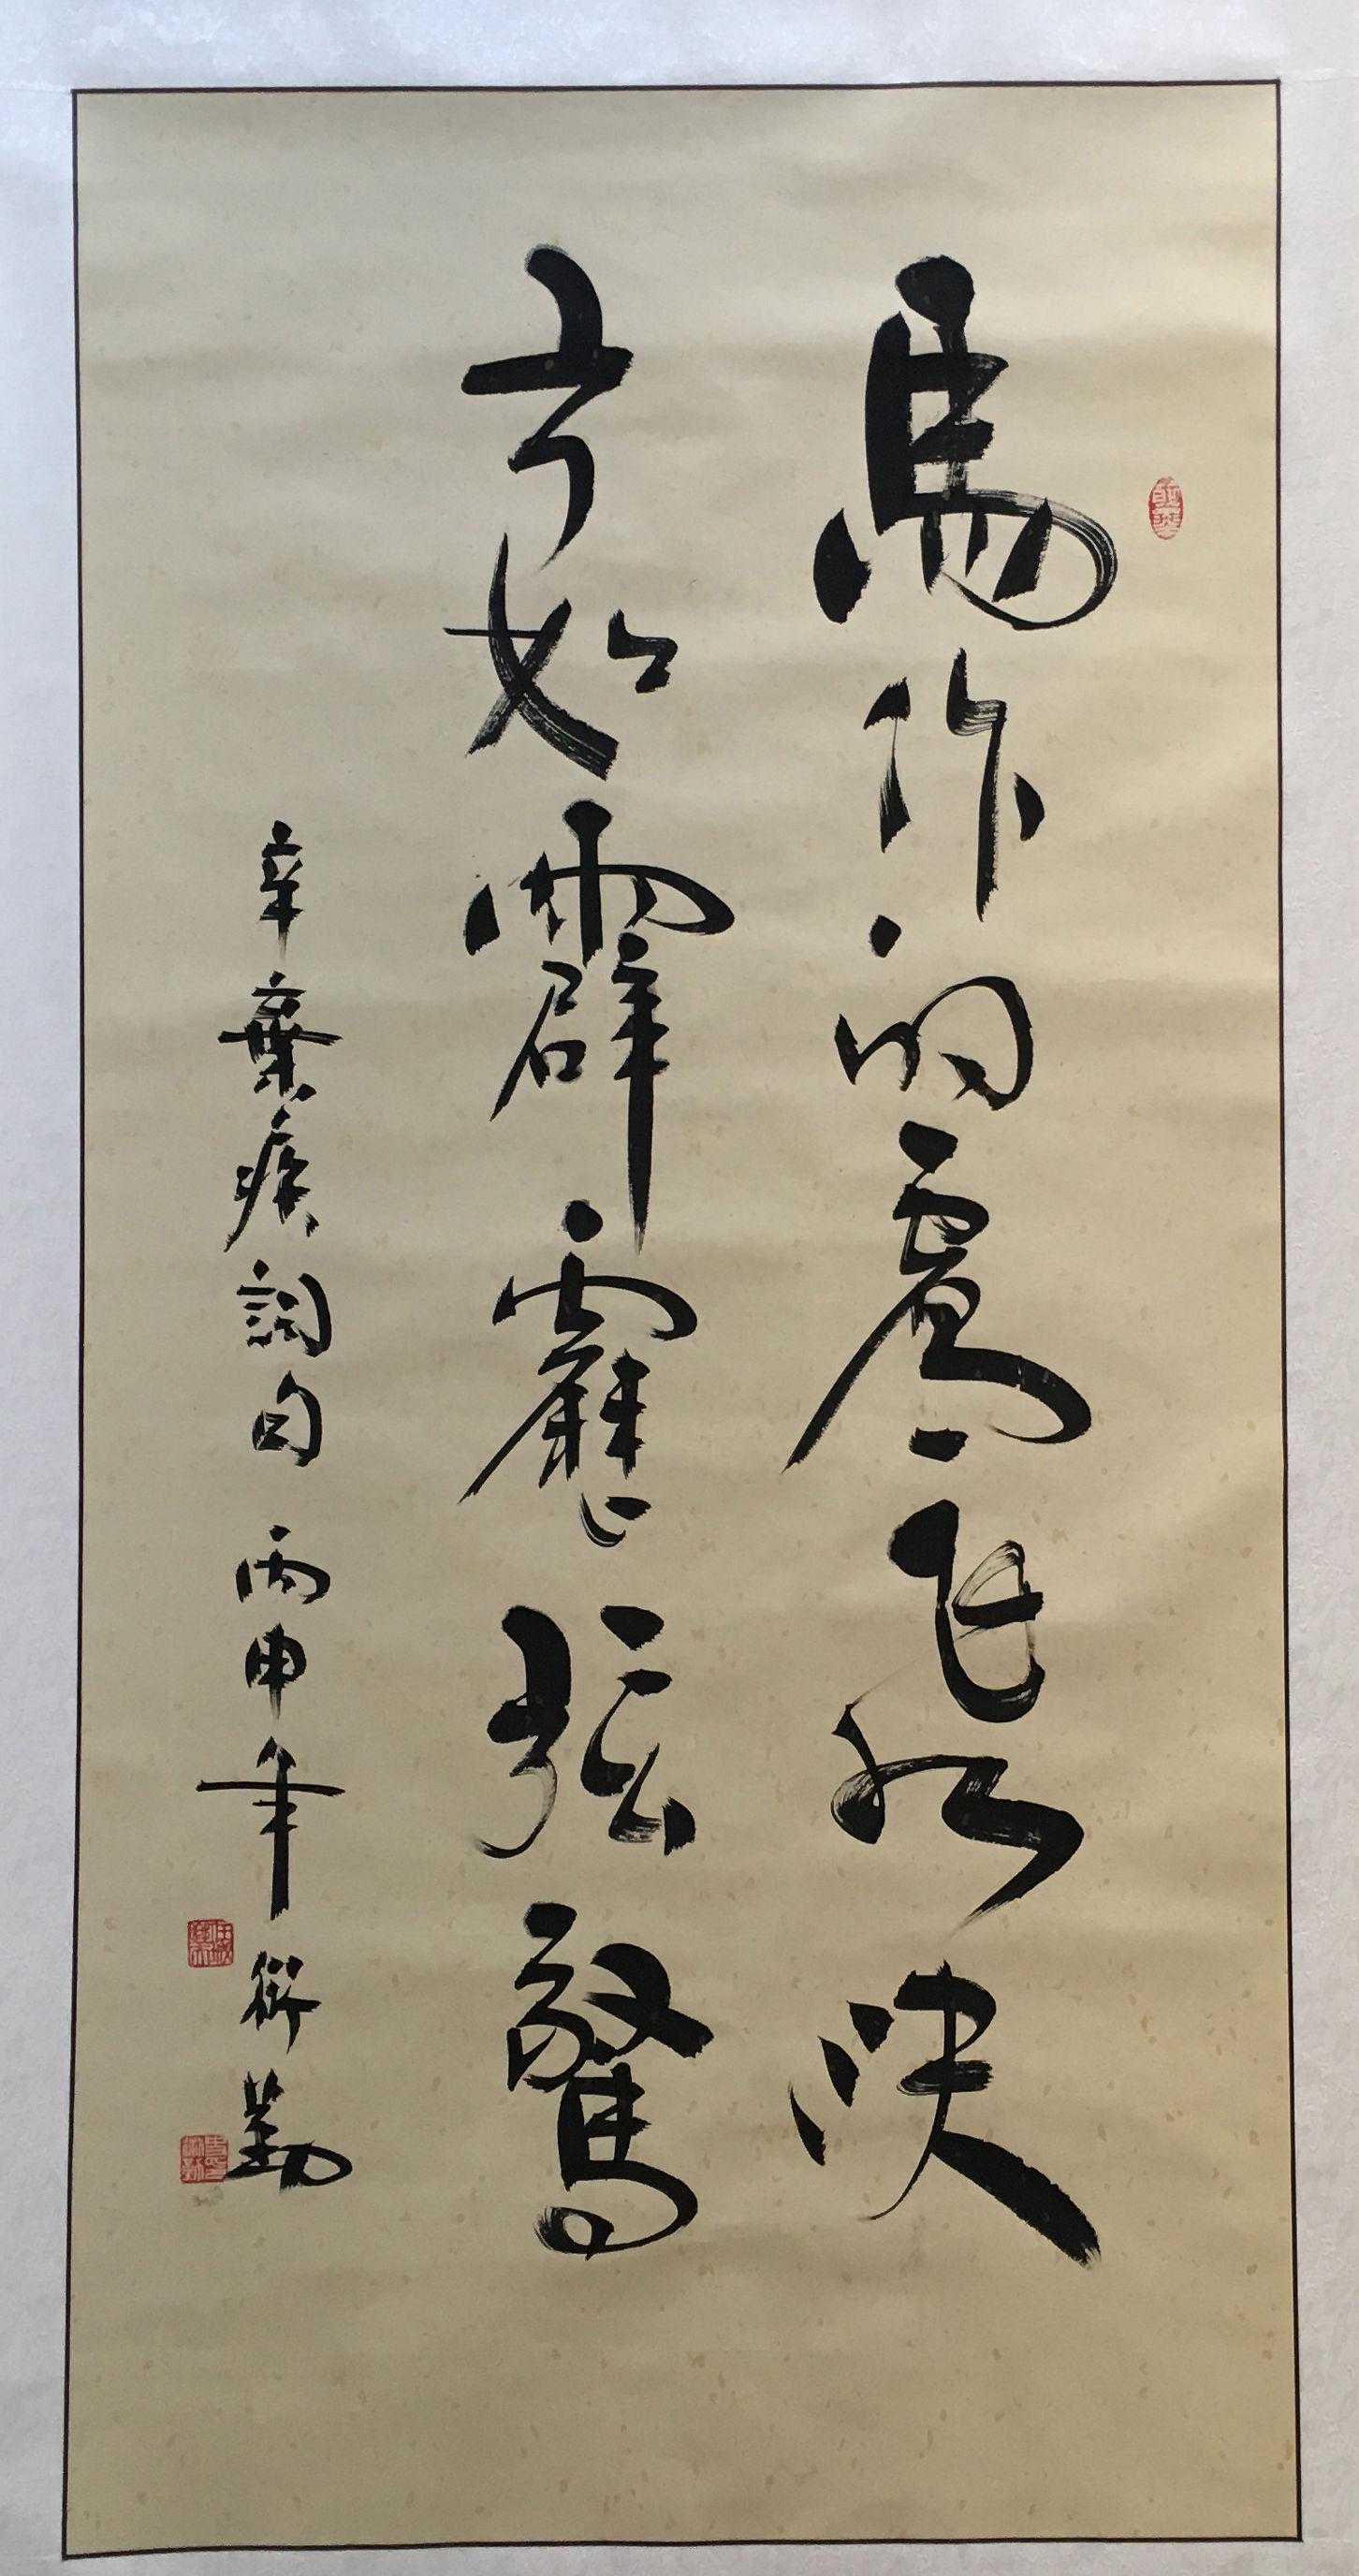 馬作的盧飛快
弓如霹靂弦驚
辛棄疾詞句 丙申年 衍勤